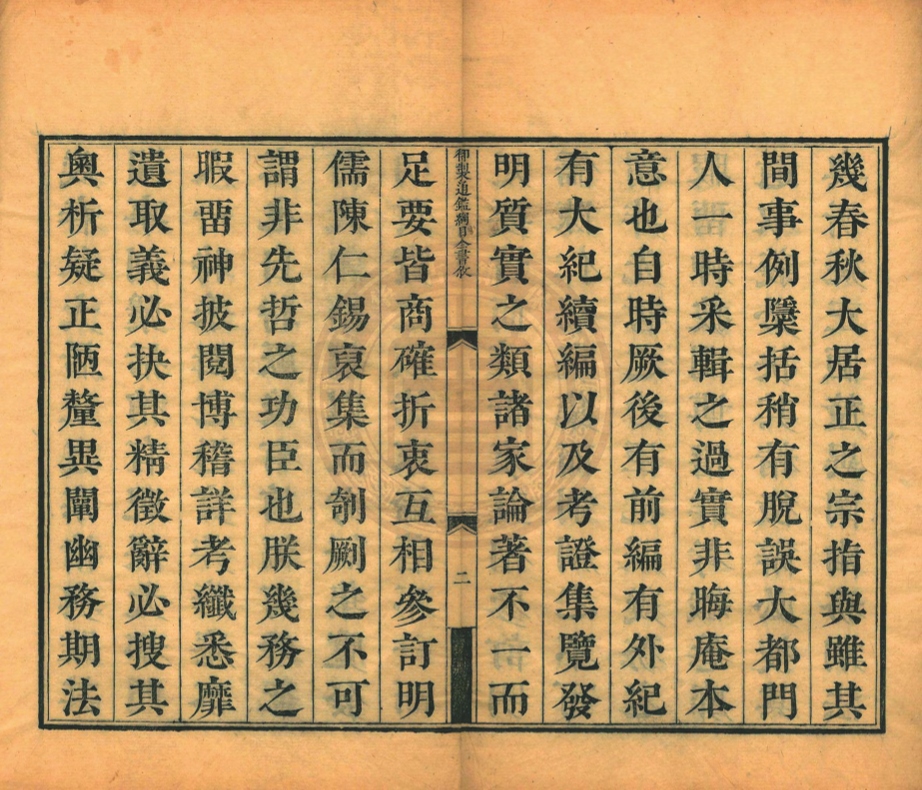 幾春秋大居正之宗指與雖其
間事例櫽括稍有脫誤大都門
人一時采輯之過實非晦庵本
意也自時厥後有前編有外紀
有大紀續編以及考證集覽發
明質實之類諸家論著不一而
御製通鑑綱目全書敘
二
足要皆商確折衷互相參訂明
儒陳仁錫裒集而剞劂之不可
謂非先哲之功臣也朕幾務之
暇畱神披閱博稽詳考纖悉靡
遺取義必抉其精徵辭必搜其
奧析疑正陋釐異闡幽務期法